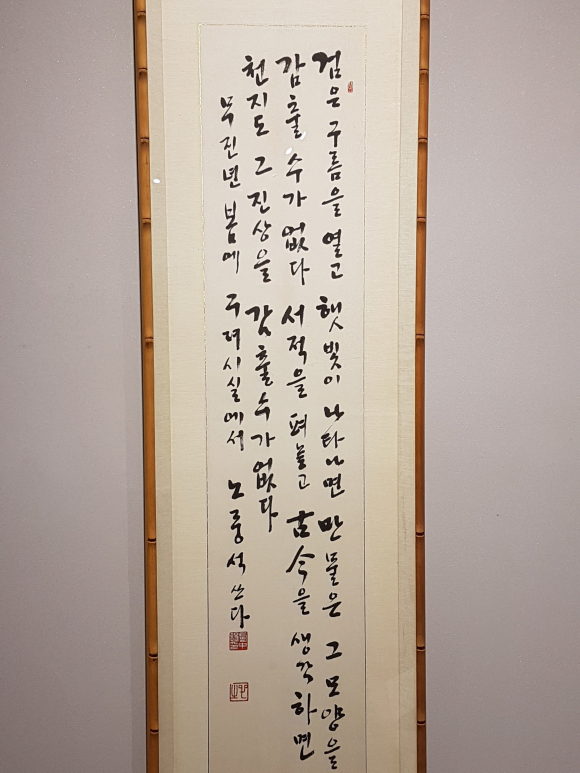 검은 구름을 열고 햇빛이 나타나면 만물은 그 모양을
감출 수가 없다 서적을 펴놓고 古今을 생각하면
천지도 그 진상을 감출 수가 없다
무진년 봄에 구려시실에서 노중석 쓰다